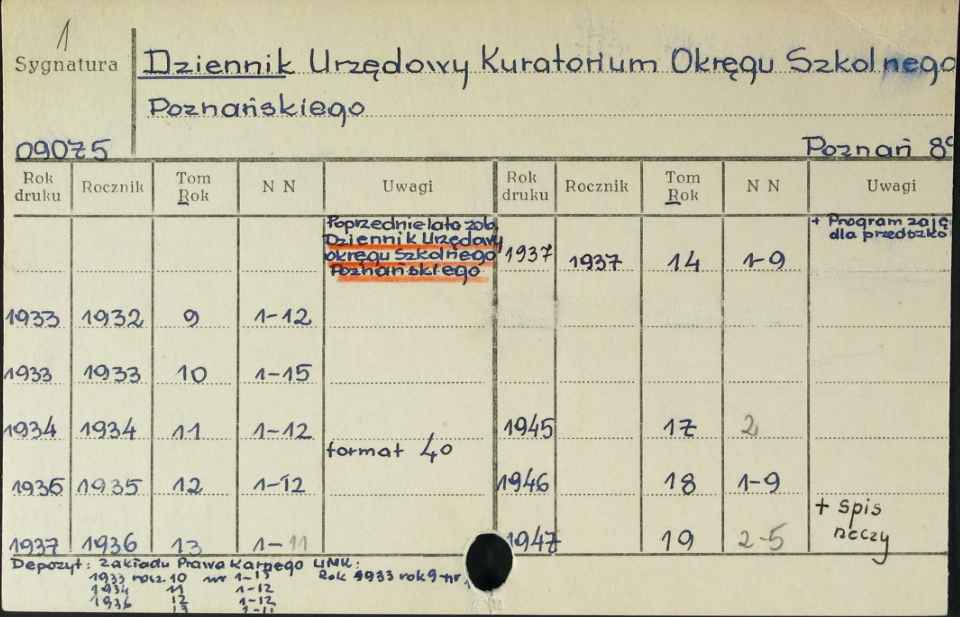 1
Sygnatura
Dziennik Urzędowy Kuratorium Okręgu Szkolnego
Poznańskiego
09075
Poznań 8°
Rok druku Rocznik Tom Rok N N Uwagi Rok druku Rocznik Tom Rok N N Uwagi
Poprzednie lata zob.
Dziennik Urzędowy
okręgu Szkolnego
Poznańskiego
1937 1937 14 1-9
+ Program zaję
dla przedszko
1933 1932 9 1-12
1933 1933 10 1-15
1934 1934 11 1-12
1945 17 2
format 40
1936 1935 12 1-12
1946 18 1-9
1937 1936 13 1-11
1947 19 2-5
+ spis
rzeczy
Depozyt: Zakładu Prawa Karnego UMK:
1933 rocz. 10 nr 1-15 Rok 1933 rok 9 nr 1
1934 11 1-12
1936 12 1-12
13 1-11